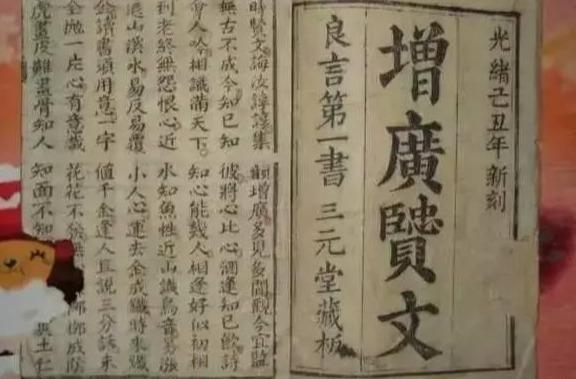 光緒己丑年新刻
增廣贒文
良言第一書 三元堂藏板
時賢文誨汝諄諄集韻增廣多見多聞觀今宜鑑
無古不成今知已知彼將心比心酒逢知已飲詩
會人吟相識滿天下知心能幾人相逢好似初相
到老終無怨恨心近水知魚性近山識鳥音易漲
退山溪水易反易覆小人心運去金成鐵時來鐵
金讀書須用意一字值千金逢人且說三分話未
全抛一片心有意栽花花不發無柳成陰
虎畫皮難畫骨知人知面不知土仁